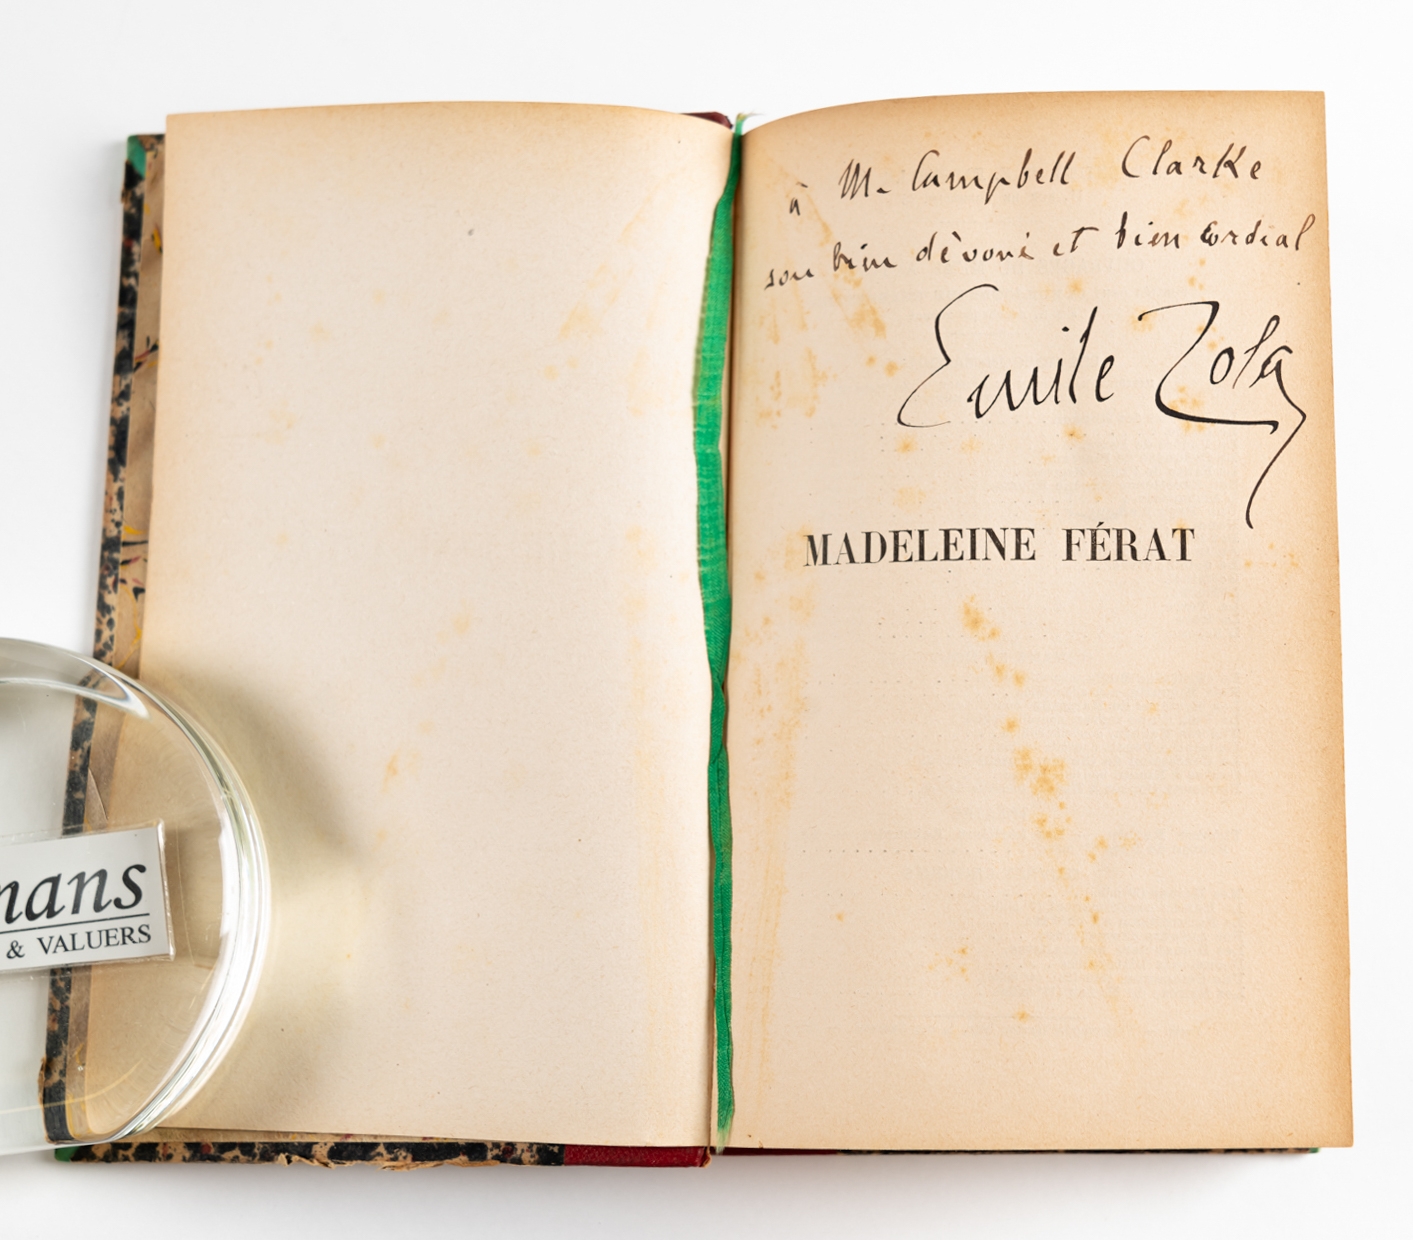 à M. Campbell Clarke
son bien dévoué et bien cordial
Emile Zola
MADELEINE FÉRAT
mans
& VALUERS